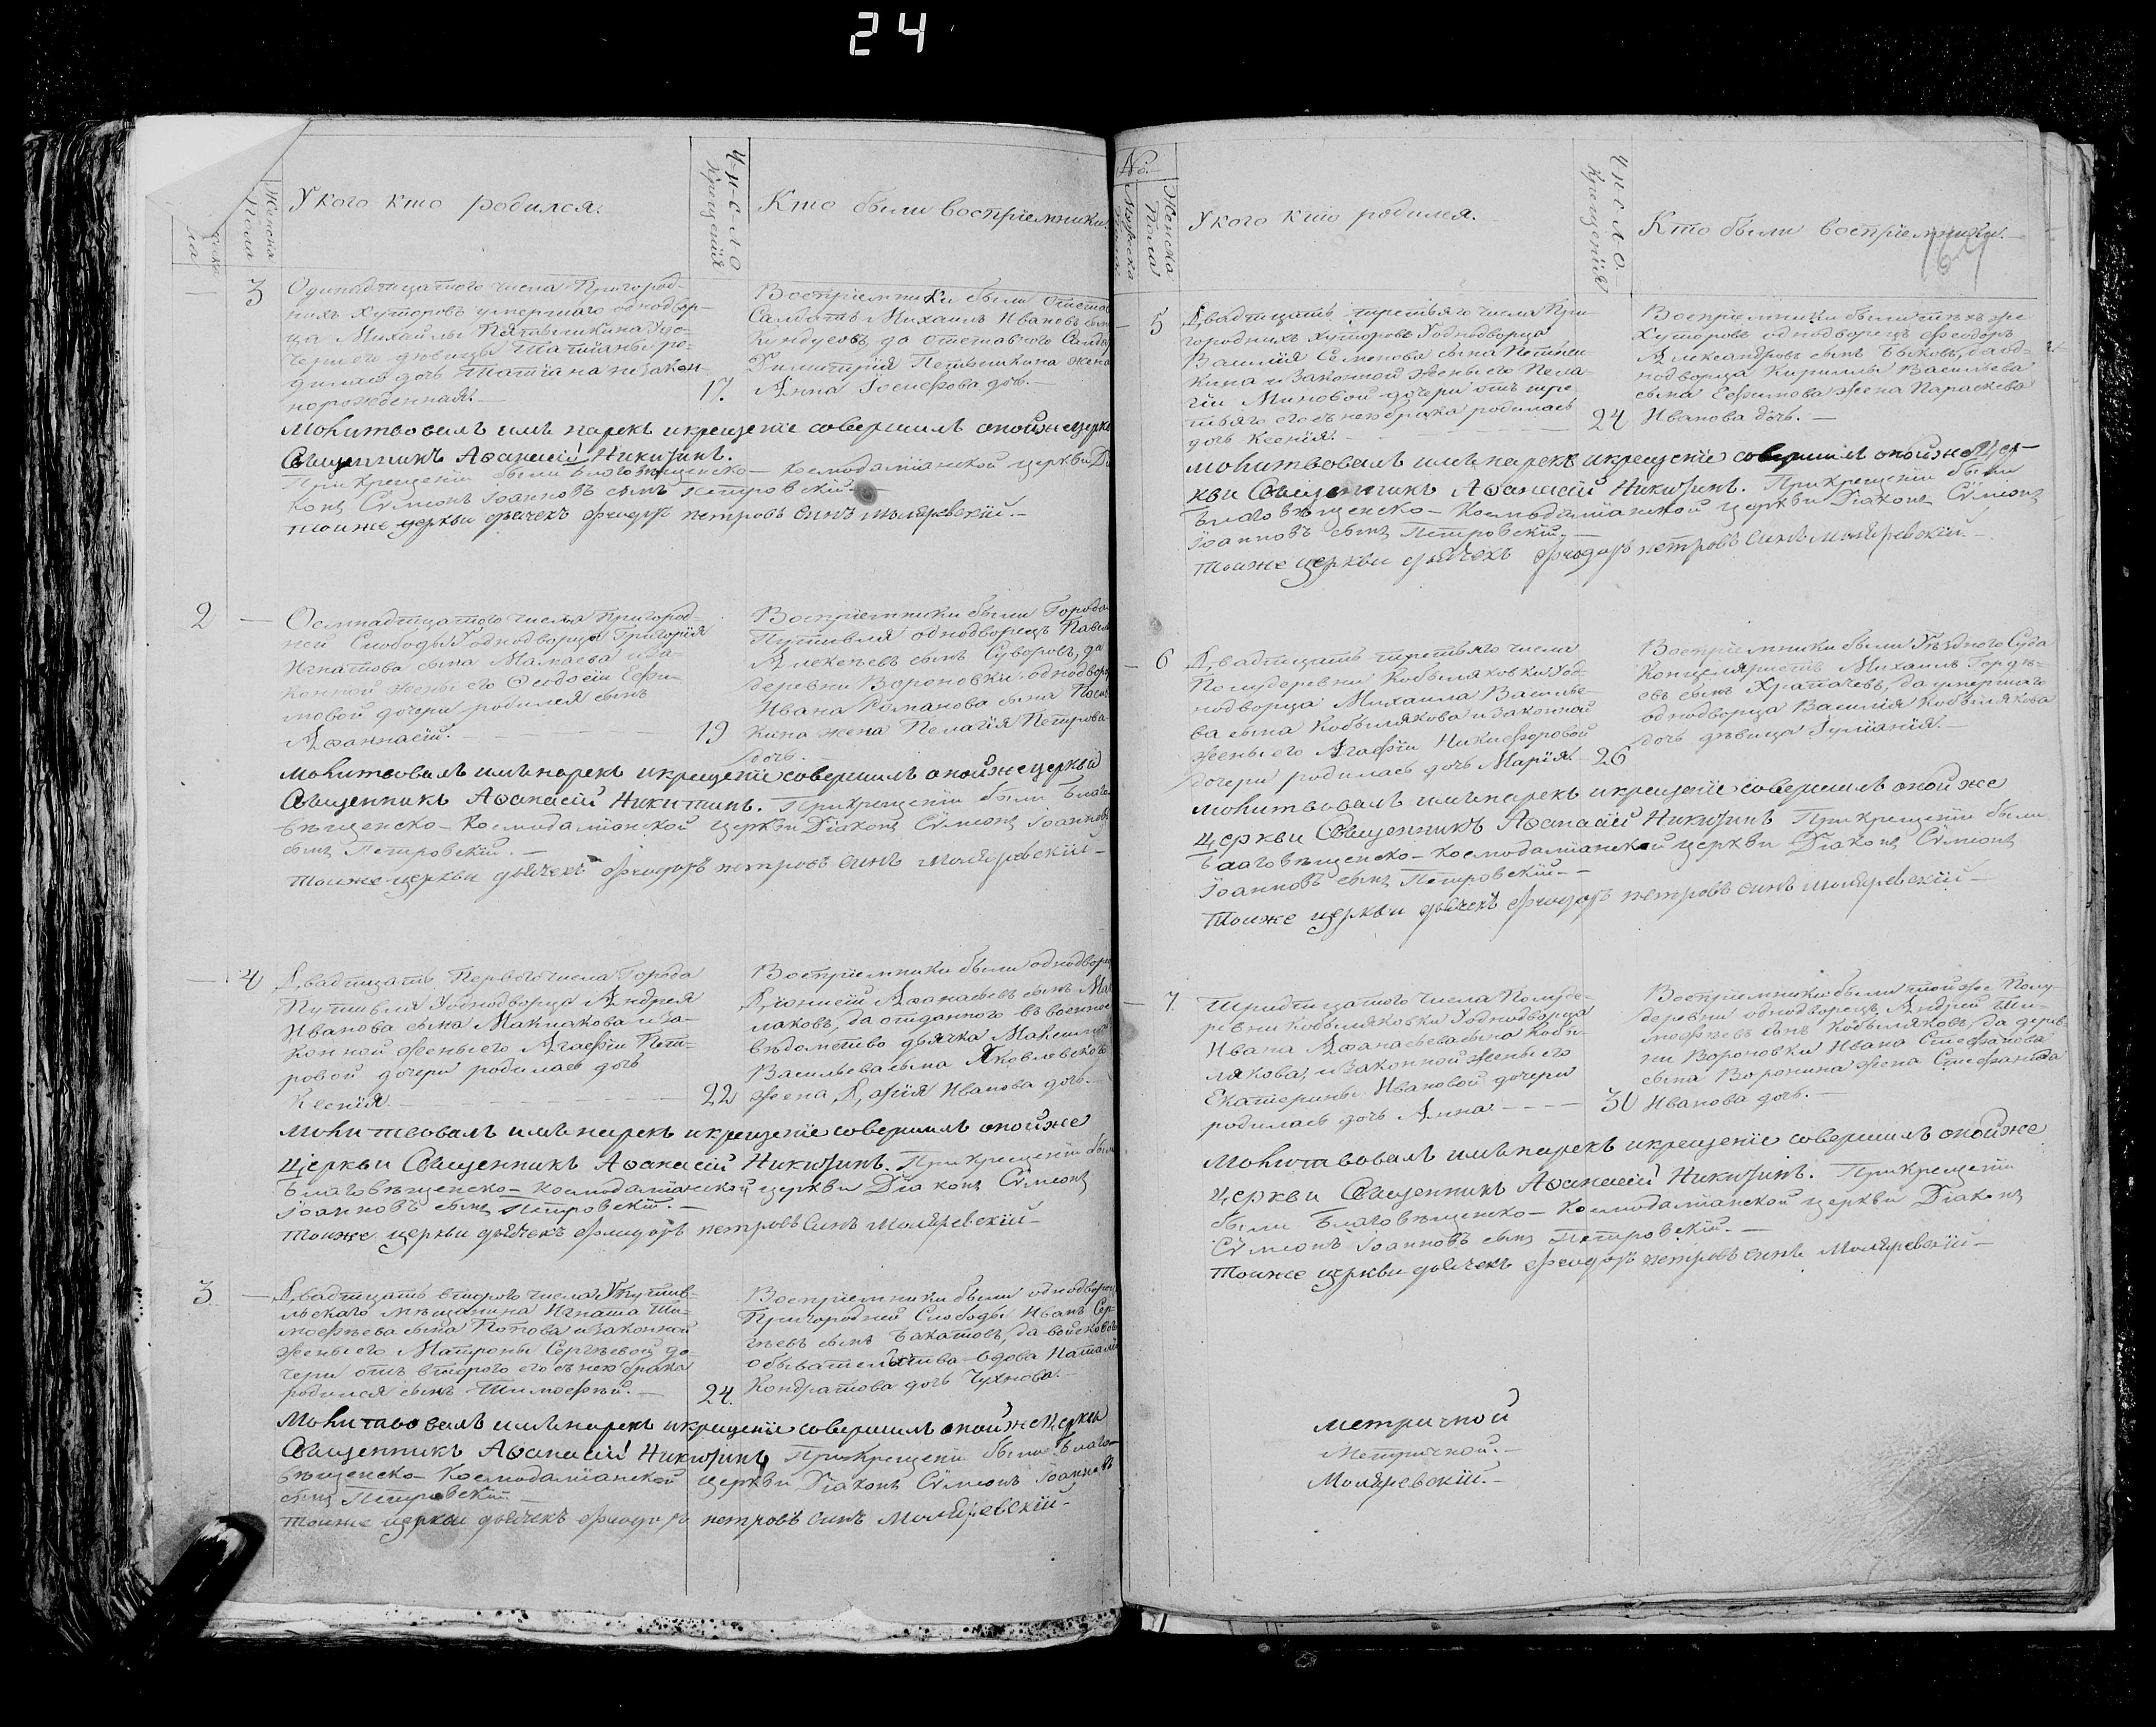 24
Женска Пола
У кого кто родился.
Число Крещенія
Кто были воспріемники
3
Одинадцатого числа Пригород-
нихъ Хуторовъ умершаго однодвор-
ца Михайлы Пятышкина у до-
чери его девицы Татіаны ро-
дилась дочь Татіана незакон-
норожденная.
17.
Воспріемники были
Салдатъ Михаилъ Ивановъ
да отставного
Димитрія Пятышкина жена
Анна Іосифова дочь.
Молитвовалъ имя нарекъ и крещеніе совершилъ оной же церкви
Священникъ Аѳанасій Никитинъ.
При крещеніи были Благовѣщенско-Космодаміанской церкви
конъ Сѵмеонъ Іоанновъ сынъ Петровскій.
Тоиже церкви дьячекъ Феодоръ петровъ синъ
2
Осмнадцатого числа Пригород-
ней Слободы У однодворца Григорія
Игнатова сына Мамаева и за-
конной жены его Ѳеодосіи Ефи-
мовой дочери родился сынъ
Аѳанасій.
19
Воспріемники были Города
Путивля однодворецъ
Алексѣевъ сынъ Суворовъ, да
деревни Вороновки
Ивана Романова сына
кина жена Пелагія Петрова
дочь.
Молитвовалъ имя нарекъ и крещеніе совершилъ оной же церкви
Священникъ Аѳанасій Никитинъ. При крещеніи были Благо-
вѣщенско-Космодаміанской церкви Діаконъ Сѵмеонъ Іоанновъ
сынъ Петровскій.
Тоиже церкви дьячекъ Феодоръ петровъ синъ
4
Двадцать Первого числа Города
Путивля У однодворца Андрея
Иванова сына Маклакова и за-
конной жены его Агафіи Пет-
ровой дочери родилась дочь
Ксенія.
22
Воспріемники были
Аѳанасьевъ сынъ
лаковъ, да отданного въ военное
вѣдомство дьячка
Васильева сына Яковлевского
жена Дарія Иванова дочь.
Молитвовалъ имя нарекъ и крещеніе совершилъ оной же
Церкви Священникъ Аѳанасій Никитинъ. При крещеніи были
Благовѣщенско-Космодаміанской церкви Діаконъ Сѵмеонъ
Іоанновъ сынъ Петровскій.
Тоиже церкви дьячекъ Феодоръ петровъ синъ
3
Двадцать второго числа У Путив-
льскаго мѣщанина Игната Ти-
моѳеева сына Попова и законной
жены его Матроны Сергѣевой до-
чери отъ второго его съ нею брака
родился сынъ Тимоѳей.
24.
Воспріемники были
Пригородней Слободы Иванъ Сер-
гѣевъ сынъ Бакатовъ, да войсковаго
обывателя вдова
Кондратова дочь Чухнова.
Молитвовалъ имя нарекъ и крещеніе совершилъ оной же Церкви
Священникъ Аѳанасій Никитинъ При крещеніи были Благо-
вѣщенско-Космодаміанской церкви Діаконъ Сѵмеонъ Іоанновъ
сынъ Петровскій.
Тоиже церкви дьячекъ Феодоръ петровъ синъ
№.
Мужеска
Женска Пола
У кого кто родился.
Число Крещенія
Кто были воспріемники.
5
Двадцать третьяго числа При-
городнихъ Хуторовъ У однодворца
Василія Семенова сына
кина и законной жены его Пела-
гіи Миновой дочери отъ тре-
тьяго его съ нею брака родилась
дочь Ксенія.
24
Воспріемники были тѣхъ же
Хуторовъ однодворецъ Феодоръ
Александровъ сынъ Быковъ, да од-
нодворца Кириллы Васильева
сына Ефимова жена Параскева
Иванова дочь.
Молитвовалъ имя нарекъ и крещеніе совершилъ оной же Цер-
кви Священникъ Аѳанасій Никитинъ. При крещеніи были
Благовѣщенско-Космодаміанской церкви Діаконъ Сѵмеонъ
Іоанновъ сынъ Петровскій.
Тоиже церкви дьячекъ Феодоръ петровъ синъ
6
Двадцать третьяго числа
Полудеревни Кобыляковки У од-
нодворца Михаила Василье-
ва сына Кобылякова и законной
жены его Агафіи Никифоровой
дочери родилась дочь Марія.
26
Воспріемники были Уѣздного Суда
Концеляристъ Михаилъ Гордѣ-
евъ сынъ Храпачевъ, да умершаго
однодворца Василія Кобылякова
дочь дѣвица Іуліанія.
Молитвовалъ имя нарекъ и крещеніе совершилъ оной же
Церкви Священникъ Аѳанасій Никитинъ При крещеніи были
Благовѣщенско-Космодаміанской церкви Діаконъ Сѵмеонъ
Іоанновъ сынъ Петровскій.
Тоиже церкви дьячекъ Феодоръ петровъ синъ
7
Тридцатого числа Полуде-
ревни Кобыляковки У однодворца
Ивана Аѳанасьева сына Кобы-
лякова, и законной жены его
Екатерины Ивановой дочери
родилась дочь Анна.
30
Воспріемники были той же Полу-
деревни однодворецъ Андрей Ти-
моѳеевъ сынъ Кобыляковъ, да дерев-
ни Вороновки Ивана Стефанова
сына Воронина жена Стефанида
Иванова дочь.
Молитвовалъ имя нарекъ и крещеніе совершилъ оной же
Церкви Священникъ Аѳанасій Никитинъ. При крещеніи
были Благовѣщенско-Космодаміанской церкви Діаконъ
Сѵмеонъ Іоанновъ сынъ Петровскій.
Тоиже церкви дьячекъ Феодоръ петровъ синъ
метричной
Метричной.